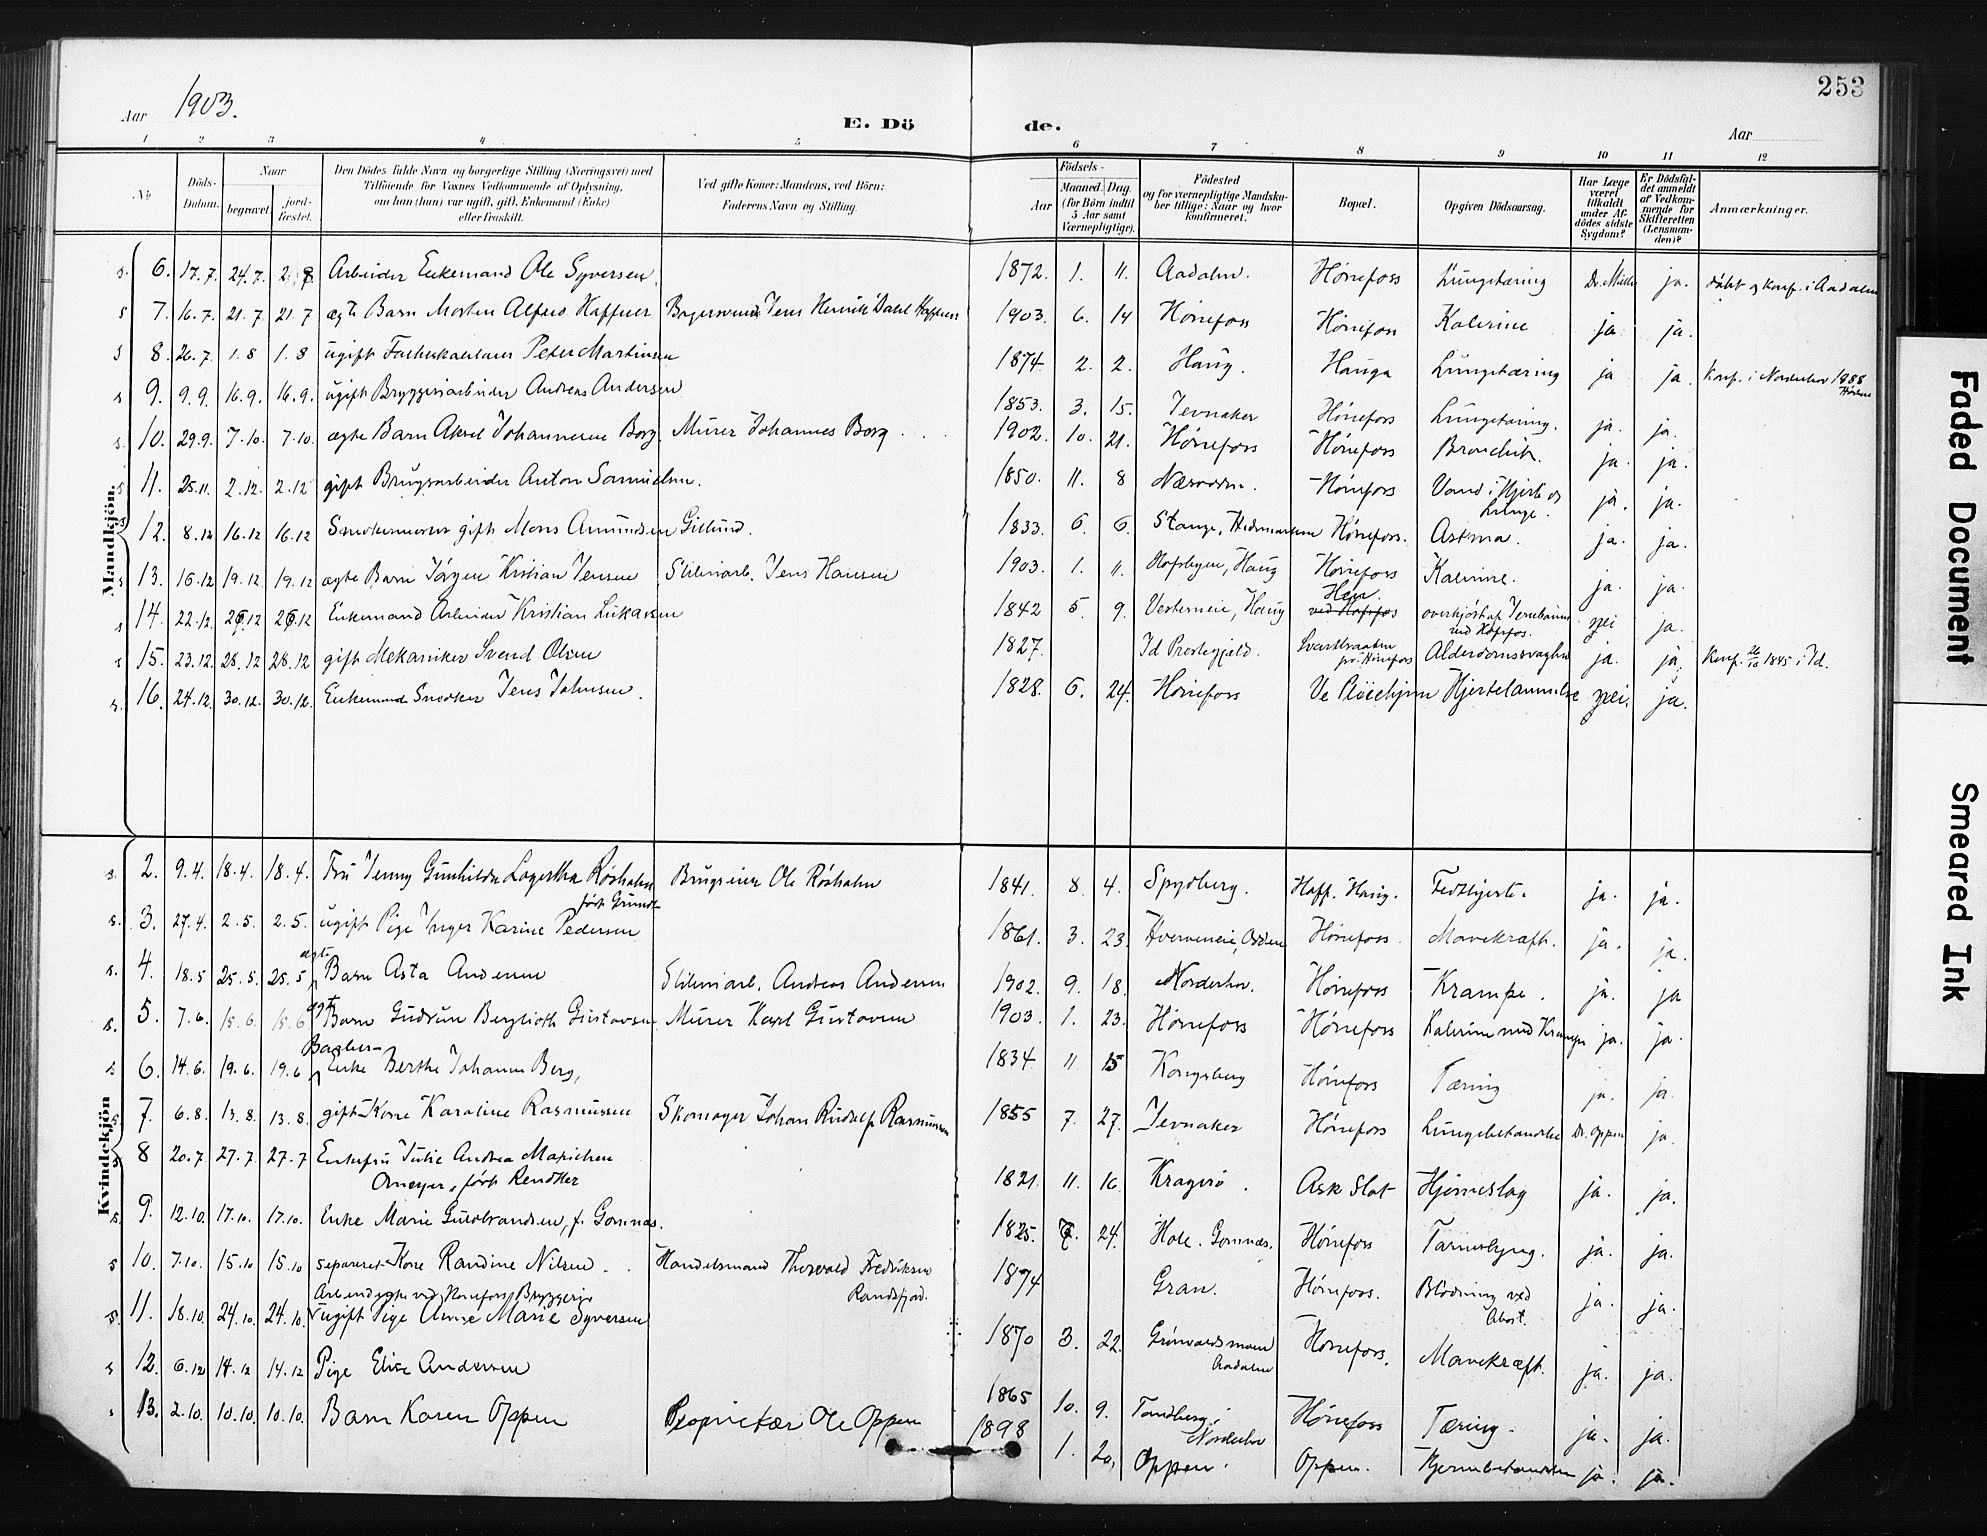 253
Aar 1903.
E. Döde.
Aar
1 2 3 4 5 6 7 8 9 10 11 12
No
Döds-Datum.
Naar
begravet.
jord-fæstet.
Den Dödes fulde Navn og borgerlige Stilling (Næringsvei) med
Tilföiende for Voxnes Vedkommende af Oplysning,
om han (hun) var ugift, gift, Enkemand (Enke)
eller fraskilt.
Ved gifte Koner: Mandens, ved Börn:
Faderens Navn og Stilling.
Födsels-
Aar
Maaned. Dag.
(for Börn indtil
5 Aar samt
Værnepligtige).
Födested
og for værnepligtige Mandskaber tillige: Naar og hvor
konfirmeret.
Bopæl.
Opgiven Dödsaarsag.
Har Læge
været
tilkaldt
under Afdödes sidste
Sygdom?
Er Dödsfaldet anmeldt
af Vedkommende for
Skifteretten
(Lensmanden)?
Anmærkninger.
Mandkjön.
s. 6. 17.7. 24.7. 2.8. Arbeider Enkemand Ole Syversen. 1872. 1. 11. Aadalen. Hönefoss Lungetæring Dr. Müller ja. döbt og konf. i Aadalen
s 7. 16.7. 21.7 21.7 ægte Barn Morten Alfred Haffner Bagersvend Jens Henrik Dahl Haffner 1903. 6. 14 Hönefoss Hönefoss Kolerine ja ja.
s 8. 26.7. 1.8 1.8 ugift Peter Martinsen 1874 2. 2. Haug. Hauga Lungetæring ja ja. Konf. i Norderhov 1888
s 9. 9.9. 16.9. 16.9. ugift Bryggeriarbeider Andreas Andersen 1853. 3. 15. Jevnaker Hönefoss Lungetæring. ja. ja.
s. 10. 29.9. 7.10. 7.10. ægte Barn Aksel Johannesen Borg. Murer Johannes Borg 1902. 10. 21. Hönefoss Hönefoss Bronchit. ja. ja.
s 11. 25.11. 2.12. 2.12 gift Brugsarbeider Anton Samuelsen. 1850. 11. 8 Næsodden. Hönefoss Vand i Hjerte og Lunge. ja. ja.
s 12. 8.12 16.12 16.12 Snedkermester gift Mons Amundsen Gillund. 1833 6. 6. Stange, Hedemarken Hönefoss. Astma. ja. ja.
s 13. 16.12 19.12. 19.12 ægte Barn Jörgen Kristian Jensen Sliberiarb. Jens Hansen 1903. 1. 11. Hofsbyen, Haug Hönefoss Kolerine. ja. ja.
s 14. 22.12. 29.12 29.12 Enkemand Arbeider Kristian Lukassen 1842 5. 9. Vesterneie, Haug Hen. ved Hofsfos overkjört af Jernbanen ved Hofsfos. nei ja.
s 15. 23.12. 28.12 28.12 gift Mekaniker Svend Olsen 1827. Id Prestegjeld. Svartbraaten pr. Hönefoss Alderdomssvaghed ja. ja. Konf. 26/10 1845 i Id.
s. 16. 24.12. 30.12. 30.12. Enkemand Snedker Jens Johnsen. 1828. 6. 24. Hönefoss Ve Pleiehjem Hjertelammelse nei. ja.
Kvindekjön
s. 2. 9.4. 18.4. 18.4. Fru Jenny Gunhilda Lagertha Röshohn, födt Grundt Brugseier Ole Röshohn 1841. 8. 4. Spydberg. Hoff. Haug. Fedthjerte. ja. ja.
s. 3. 27.4. 2.5. 2.5. ugift Pige Inger Karine Pedersen 1861. 3. 23. Hönefoss. Mavekræft. ja. ja.
s. 4. 18.5 25.5. 25.5 ægte Barn Asta Andersen Sliberiarb. Andreas Andersen 1902. 9. 18. Norderhov. Hönefoss Krampe. ja. ja
s. 5. 7.6. 15.6. 15.6 ægte Barn Gudrun Berglioth Gustavsen Murer Karl Gustavsen 1903. 1. 23. Hönefoss Hönefoss Kolerine med Krampe ja. ja.
s 6. 14.6. 19.6. 19.6 Bagher- Enke Berthe Johanne Berg, 1834 11 15 Kongsberg Hönefoss Tæring ja. ja.
s 7. 6.8. 13.8. 13.8. gift Kone Karoline Rasmussen Skomager Johan Rudolf Rasmussen 1855 7. 27. Jevnaker Hönefoss Lungebetændelse Dr. Oppen ja.
s 8 20.7. 27.7. 27.7 Enkefru Julie Andrea Marichen Omeyer, födt Rendtler 1821. 11. 16 Kragerö. Ask Slot Hjerneslag ja. ja.
s. 9. 12.10. 17.10. 17.10. Enke Marie Gudbrandsen, f. Gomnæs. 1825. 7. 24. Hole. Gomnæs. Hönefoss Tarmslyng. ja. ja.
s 10. 7.10. 15.10 15.10 separeret Kone Randine Nilsen. Handelsmand Thorvald Fredriksen Randsfjord. 1874 Gran. Hönefoss. Blödning ved Abort. ja. ja.
s. 11. 18.10. 24.10. 24.10. Arbeiderske ved Hönefoss Bryggeri ugift Pige Anne Marie Syversen 1870 3. 22. Grönvoldsmoen Aadalen Hönefoss. Mavekræft. ja. ja.
s 12. 6.12 14.12 14.12 Pige Elise Andersen 1865 10. 9. Tandberg i Norderhov Hönefoss Tæring. ja. ja.
s 13. 2.10. 10.10. 10.10. Barn Karen Oppen Proprietær Ole Oppen 1898 1. 20. Oppen. Oppen. Hjernebetændelse ja. ja.
Faded Document
Smeared Ink